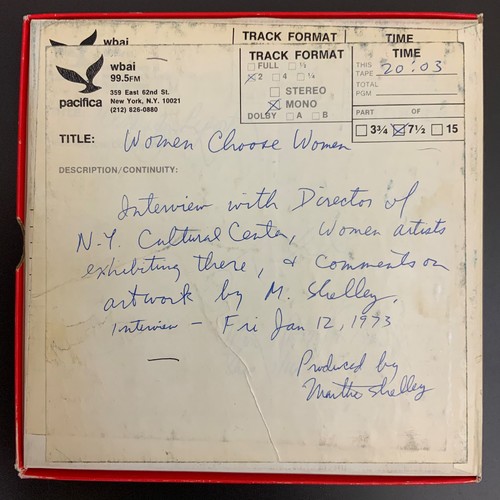 wbai
TRACK FORMAT
TIME
wbai
99.5FM
pacifica
359 East 62nd St.
New York, N.Y. 10021
(212) 826-0880
TRACK FORMAT
FULL ½
2 4 ¼
STEREO
MONO
DOLBY A B
TIME
THIS TAPE 20:03
TOTAL PGM
PART OF
3¾ 7½ 15
TITLE: Women Choose Women
DESCRIPTION/CONTINUITY:
Interview with Director of
N.Y. Cultural Center, Women artists
exhibiting there, & comments on
artwork by M. Shelley.
Interview – Fri Jan 12, 1973
Produced by
Martha Shelley